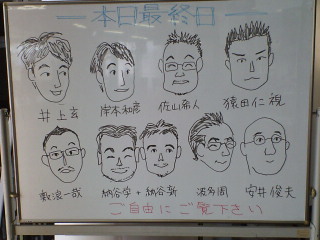 本日最終日
井上玄 岸本和彦 佐山希人 猿田仁視
納谷学 + 納谷新 波多周 安井俊夫
ご自由にご覧下さい